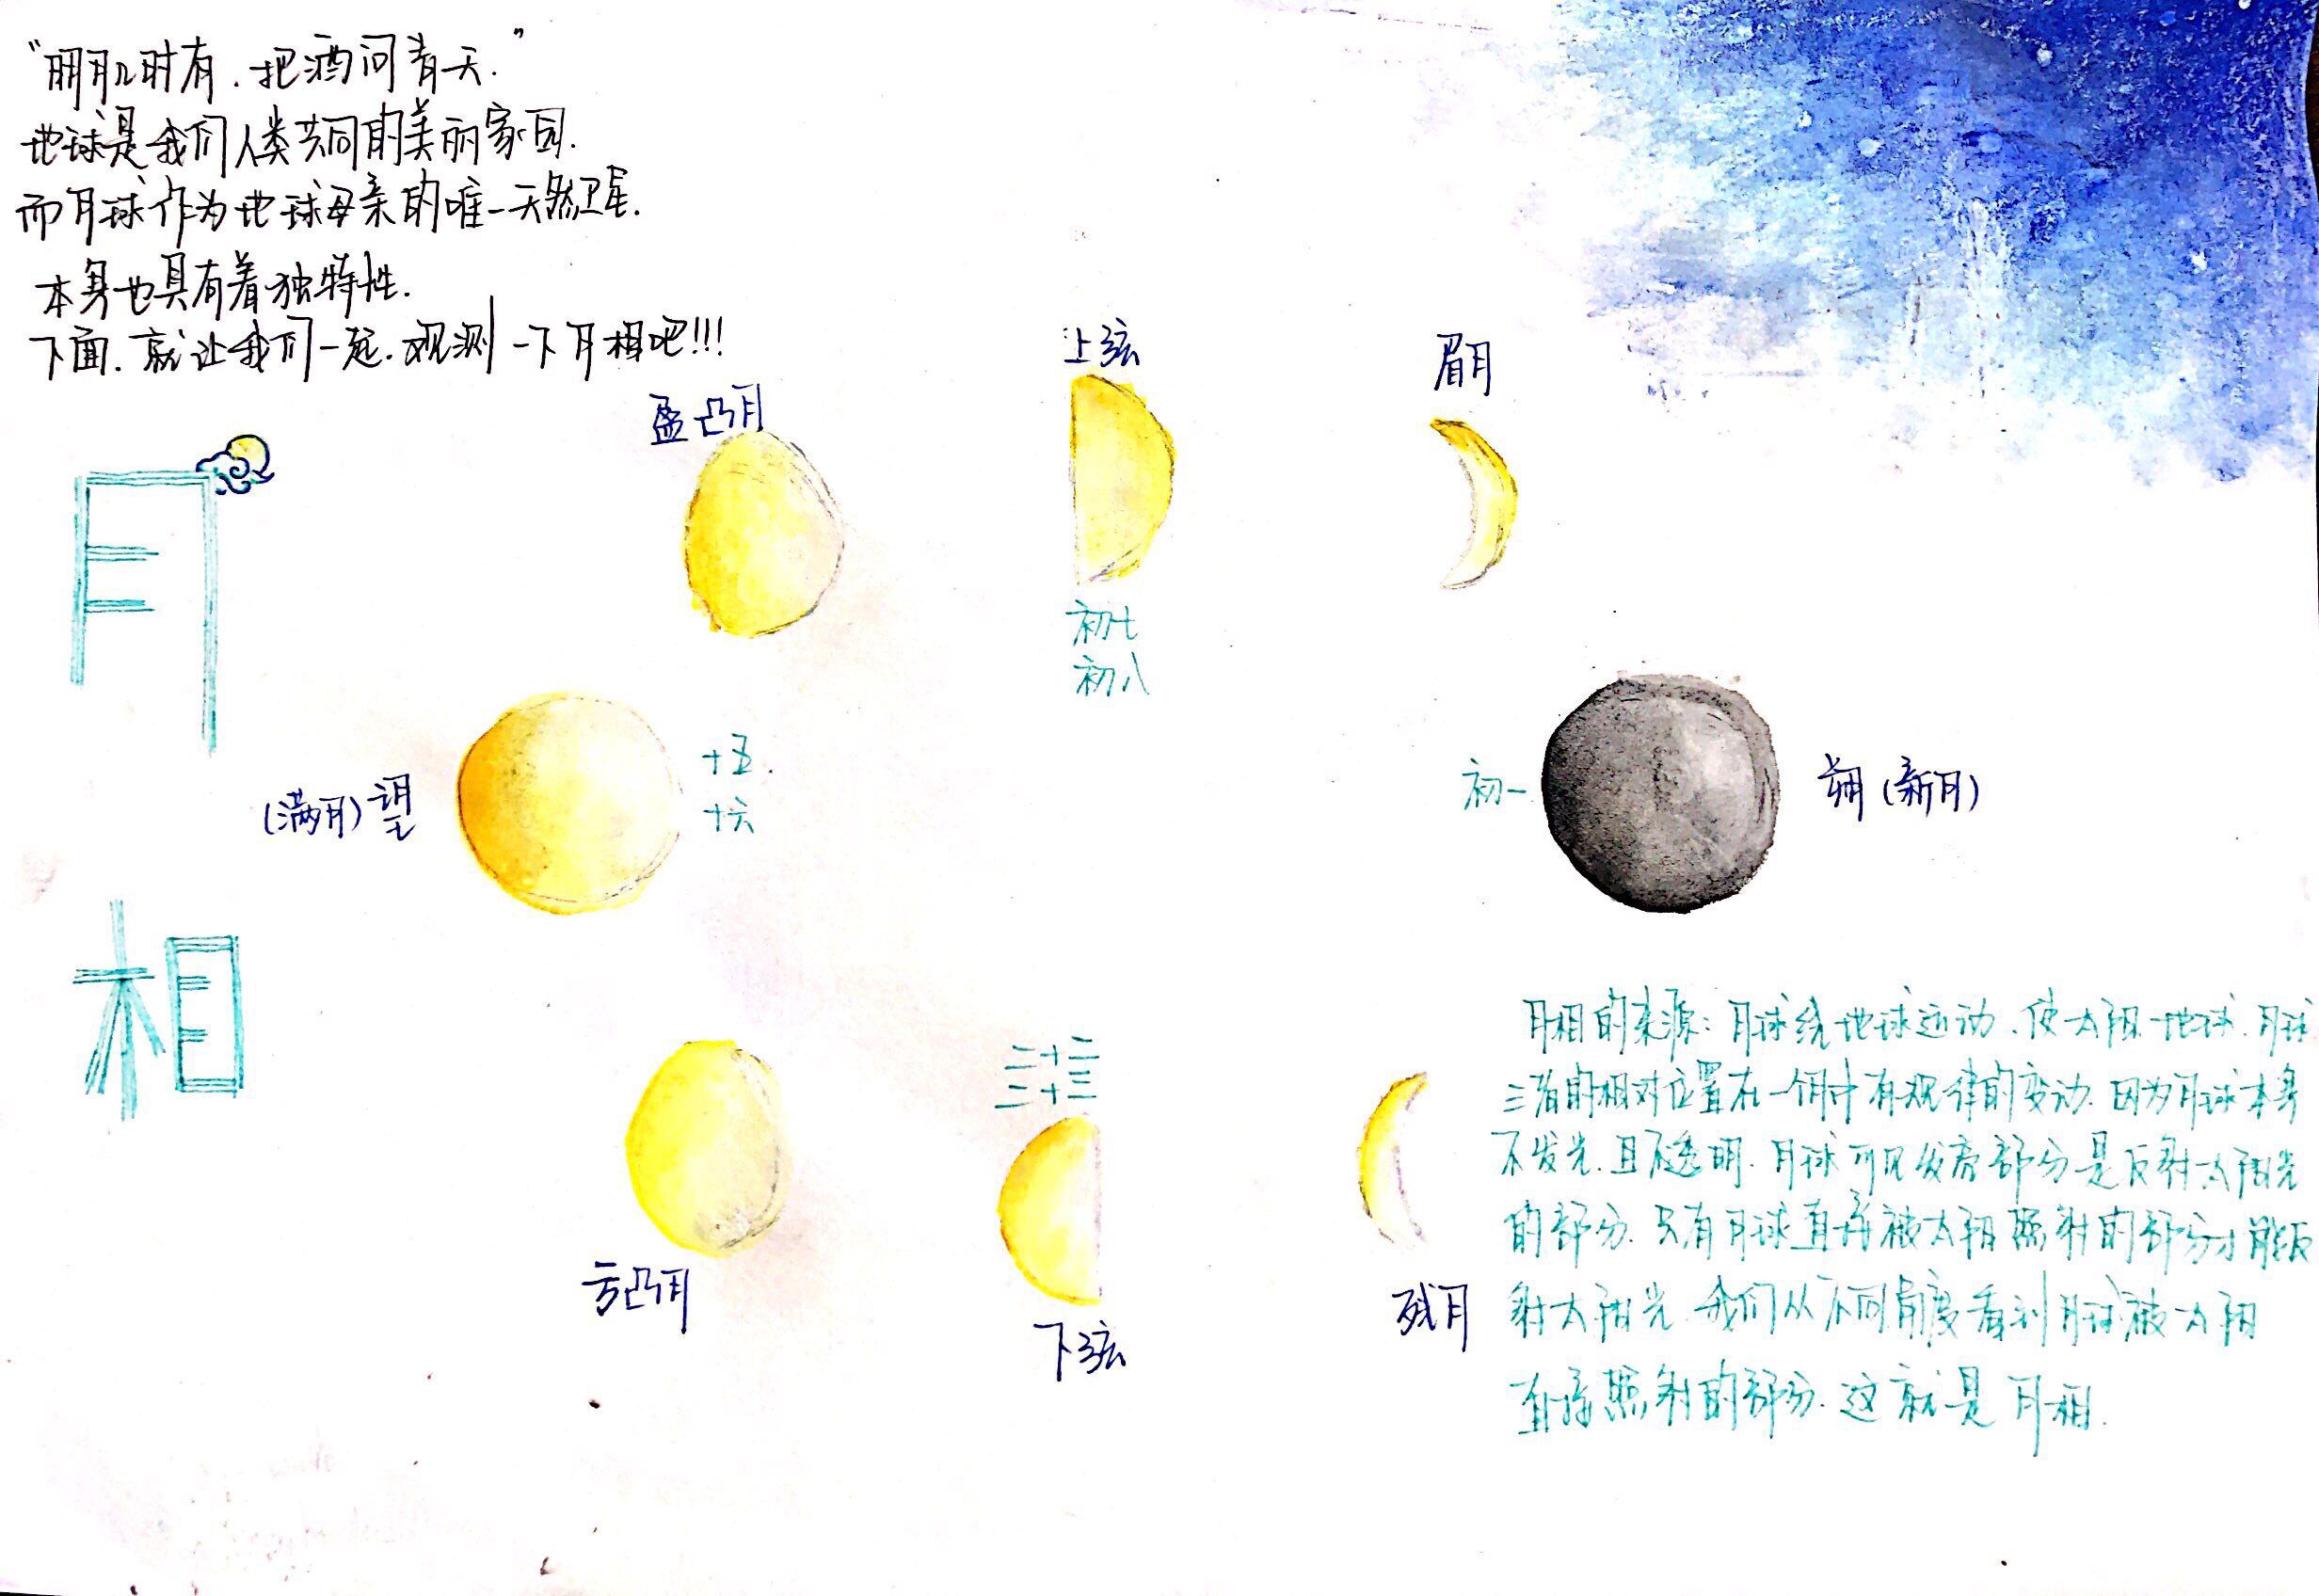 “明月几时有.把酒问青天.”
地球是我们人类共同的美丽家园.
而月球作为地球母亲的唯一天然卫星.
本身也具有着独特性.
下面.就让我们一起.观测一下月相吧!!!
月
相
盈凸月
上弦
初七
初八
眉月
(满月)望
十五.
十六
初一
朔(新月)
亏凸月
二十二
二十三
下弦
残月
月相的来源:月球绕地球运动.使太阳.地球.月球
三者的相对位置在一个月中有规律的变动.因为月球本身
不发光.且不透明.月球可见发亮部分是反射太阳光
的部分.只有月球直接被太阳照射的部分才能反
射太阳光.我们从不同角度看到月球被太阳
直接照射的部分.这就是月相.